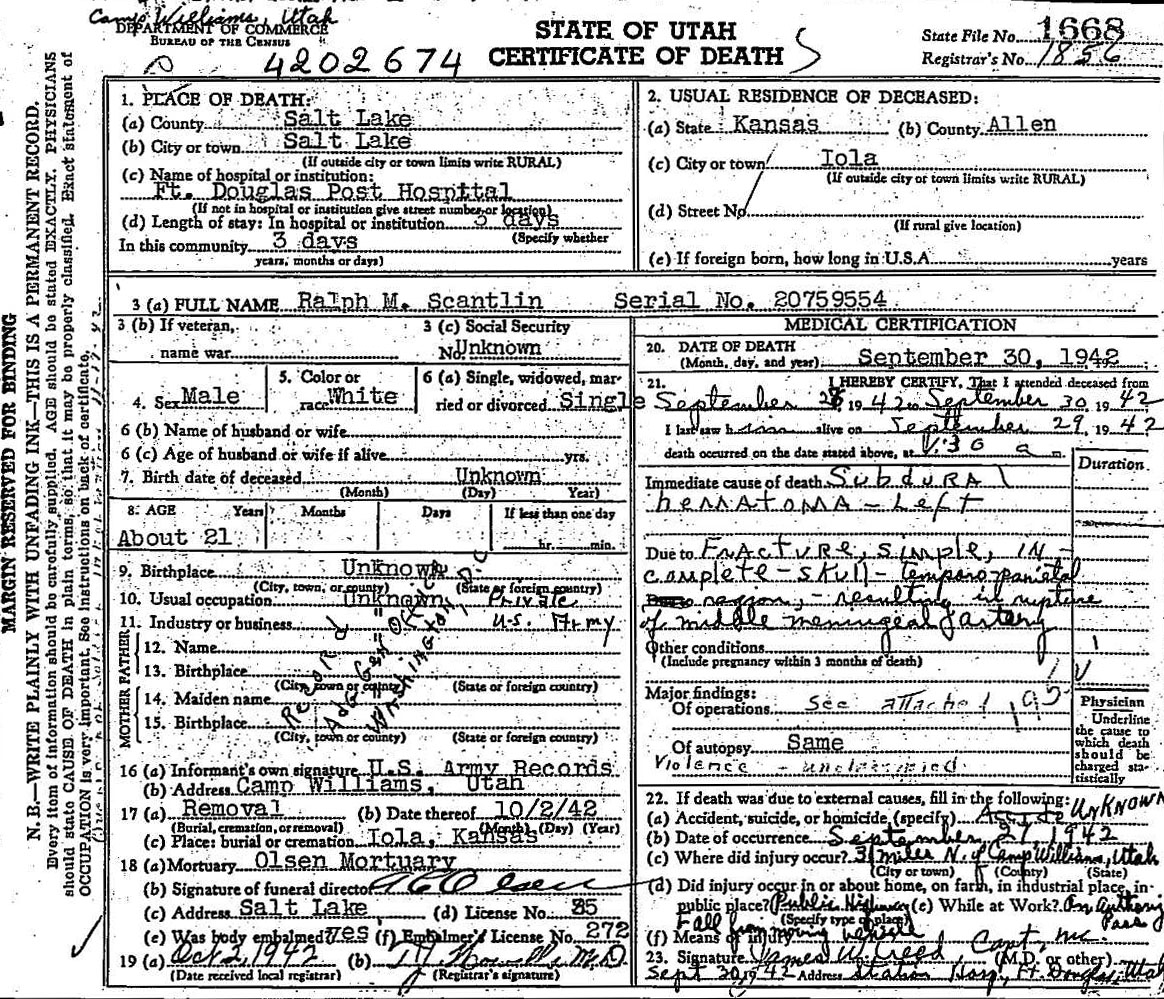 Camp Williams, Utah
DEPARTMENT OF COMMERCE
BUREAU OF THE CENSUS
4202674
STATE OF UTAH
CERTIFICATE OF DEATH
S
State File No. 1668
Registrar's No. 1856
MARGIN RESERVED FOR BINDING
N. B.—WRITE PLAINLY WITH UNFADING INK—THIS IS A PERMANENT RECORD.
Every item of information should be carefully supplied. AGE should be stated EXACTLY. PHYSICIANS
should state CAUSE OF DEATH in plain terms, so that it may be properly classified. Exact statement of
OCCUPATION is very important. See instructions on back of certificate.
1. PLACE OF DEATH:
(a) County Salt Lake
(b) City or town Salt Lake
(If outside city or town limits write RURAL)
(c) Name of hospital or institution:
Ft. Douglas Post Hospital
(If not in hospital or institution give street number or location)
(d) Length of stay: In hospital or institution 3 days
(Specify whether
In this community 3 days
years, months or days)
2. USUAL RESIDENCE OF DECEASED:
(a) State Kansas (b) County Allen
(c) City or town Iola
(If outside city or town limits write RURAL)
(d) Street No.
(If rural give location)
(e) If foreign born, how long in U.S.A. years
3 (a) FULL NAME Ralph M. Scantlin Serial No. 20759554
3 (b) If veteran,
name war
3 (c) Social Security
No. Unknown
4. Sex Male
5. Color or
race White
6 (a) Single, widowed, mar-
ried or divorced Single
6 (b) Name of husband or wife
6 (c) Age of husband or wife if alive yrs.
7. Birth date of deceased Unknown
(Month) (Day) Year)
8. AGE Years Months Days If less than one day
About 21 hr. min.
9. Birthplace Unknown
(City, town, or county) (State or foreign country)
10. Usual occupation Unknown Private
11. Industry or business U.S. Army
FATHER
12. Name
13. Birthplace
(City, town or county) (State or foreign country)
MOTHER
14. Maiden name
15. Birthplace
(City, town or county) (State or foreign country)
Record
Adg Gen Office
Washington, D.C.
16 (a) Informant's own signature U.S. Army Records
(b) Address Camp Williams, Utah
17 (a) Removal (b) Date thereof 10/2/42
(Burial, cremation, or removal) (Month) (Day) (Year)
(c) Place: burial or cremation Iola, Kansas
18 (a) Mortuary Olsen Mortuary
(b) Signature of funeral director Olsen
(c) Address Salt Lake (d) License No. 85
(e) Was body embalmed? yes (f) Embalmer's License No. 272
19 (a) Oct 2, 1942 (b) M.D.
(Date received local registrar) (Registrar's signature)
MEDICAL CERTIFICATION
20. DATE OF DEATH
(Month, day, and year) September 30, 1942
21. I HEREBY CERTIFY, That I attended deceased from
September 28, 1942 to September 30, 1942
I last saw him alive on September 29, 1942
death occurred on the date stated above, at 1:30 a m.
Duration
Immediate cause of death Subdural
hematoma - Left
Due to Fracture, simple, in-
complete - skull - temporo-parietal
region, - resulting in rupture
of middle meningeal artery
Other conditions
(Include pregnancy within 3 months of death)
Major findings:
Of operations See attached 195
Of autopsy Same
Violence - unclassified
Physician
Underline
the cause to
which death
should be
charged sta-
tistically
22. If death was due to external causes, fill in the following:
(a) Accident, suicide, or homicide (specify) Accide UNKNOWN
(b) Date of occurrence September 27, 1942
(c) Where did injury occur? 3 1/2 miles N. of Camp Williams, Utah
(City or town) (County) (State)
(d) Did injury occur in or about home, on farm, in industrial place, in
public place? Public Highway (e) While at Work? On Authory
(Specify type of place) Pass
(f) Means of injury Fall from moving vehicle
23. Signature James W. Creed, Capt, MC.
(M.D. or other)
Sept 30, 1942 Address Station Hosp, Ft. Douglas, Utah